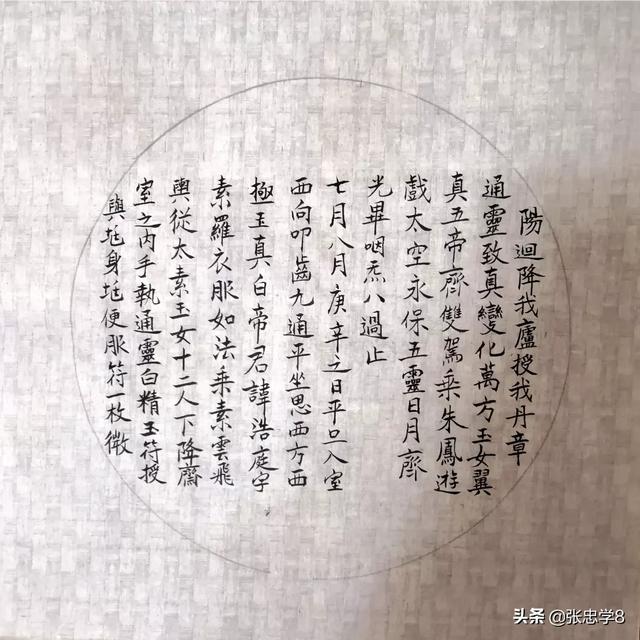 陽迴降我廬授我丹章
通靈致真變化萬方玉女翼
真五帝齊雙駕乘朱鳳遊
戲太空永保五靈日月齊
光畢咽炁八過止
七月八月庚辛之日平旦入室
西向叩齒九通平坐思西方西
極玉真白帝君諱浩庭字
素羅衣服如法乘素雲飛
輿從太素玉女十二人下降齋
室之內手執通靈白精玉符授
與兆身兆便服符一枚微
头条 @张忠学8